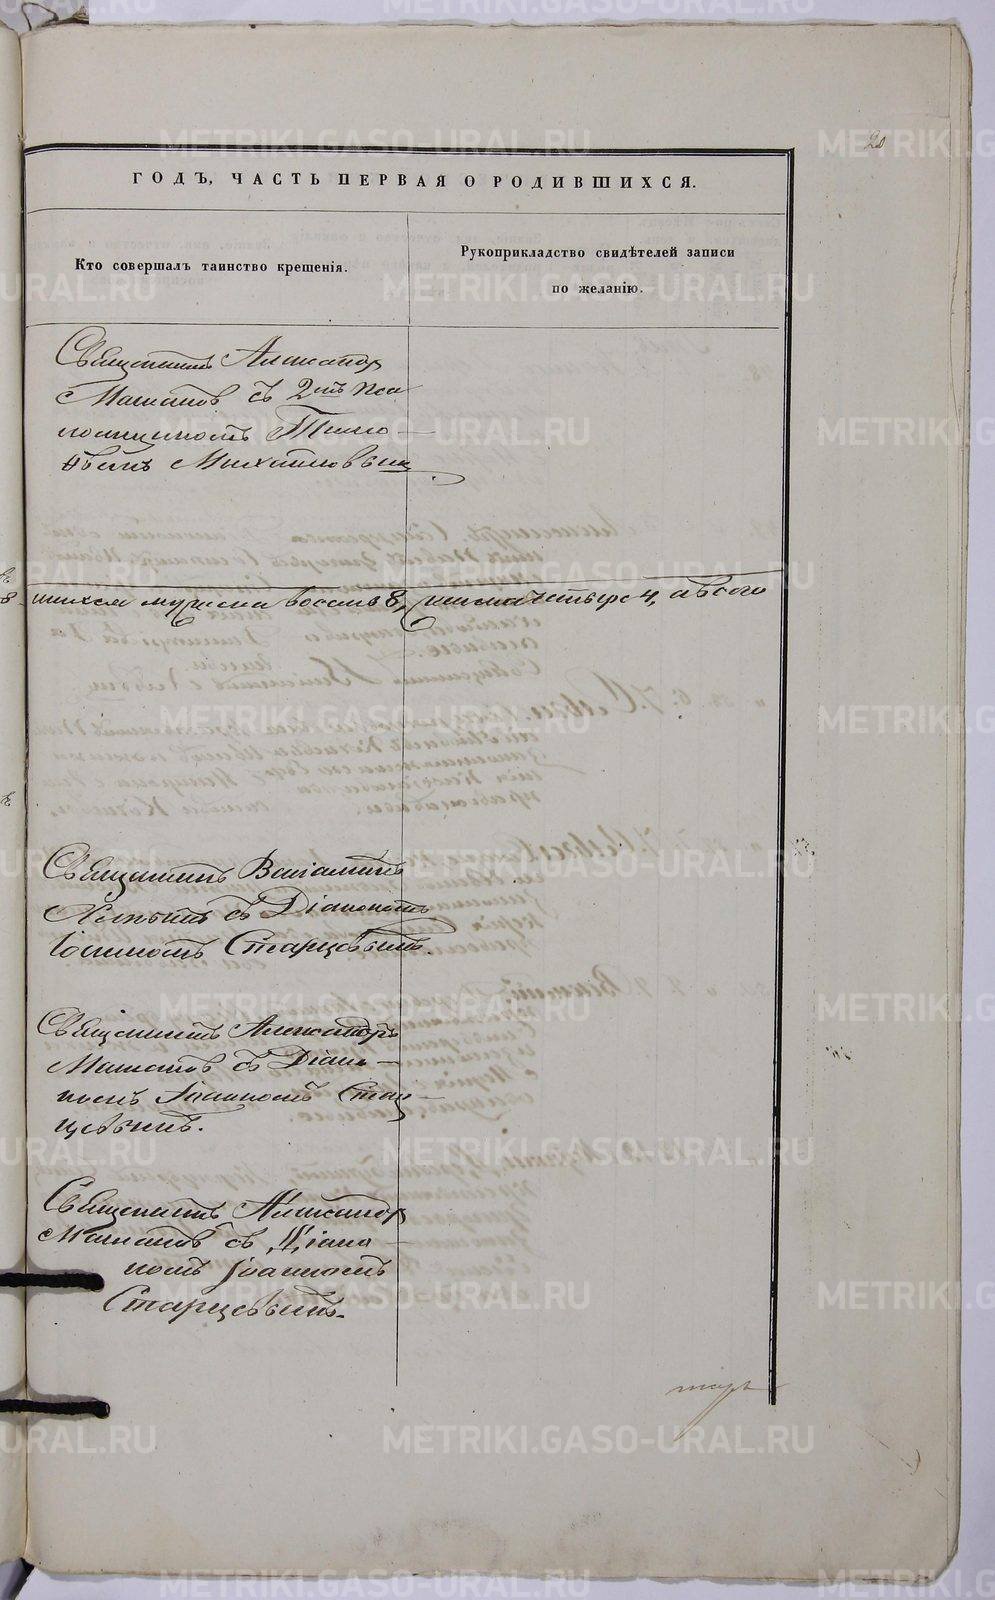 20
ГОДЪ, ЧАСТЬ ПЕРВАЯ О РОДИВШИХСЯ.
Кто совершалъ таинство крещенія.
Рукоприкладство свидѣтелей записи
по желанію.
Священникъ Александр
съ 2мъ Пса
ломщикомъ Тимо
Михаиловым
шихся мужска восемь 8, женска четыре 4, а всего
Священникъ Веніаминъ
съ Діакономъ
Іоанномъ Старцевымъ.
Священникъ Александръ
съ Діако
номъ Іоанномъ Стар
цевымъ.
Священникъ Александр
съ Діако
номъ Іоанномъ
Старцевымъ.
METRIKI.GASO-URAL.RU